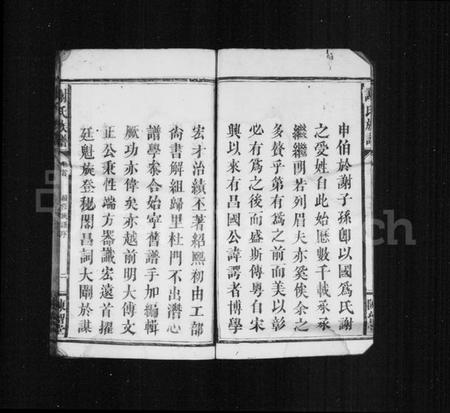 申伯於謝子孫卽以國爲氏謝
之受姓自此始歷數千載承承
繼繼明若列眉夫亦奚俟余之
多聱乎第有爲之前而美以彰
必有爲之後而盛斯傳粤自宋
興以來有昌國公諱諤者博學
宏才治績丕著紹熙初由工部
尙書解組歸里杜門不出潛心
譜學叅合始寧舊譜手加編輯
厥功亦偉矣亦越前明大傳文
正公秉性端方器識宏遠首擢
廷魁旋登秘閣昌詞大闡於謀
謝氏族譜